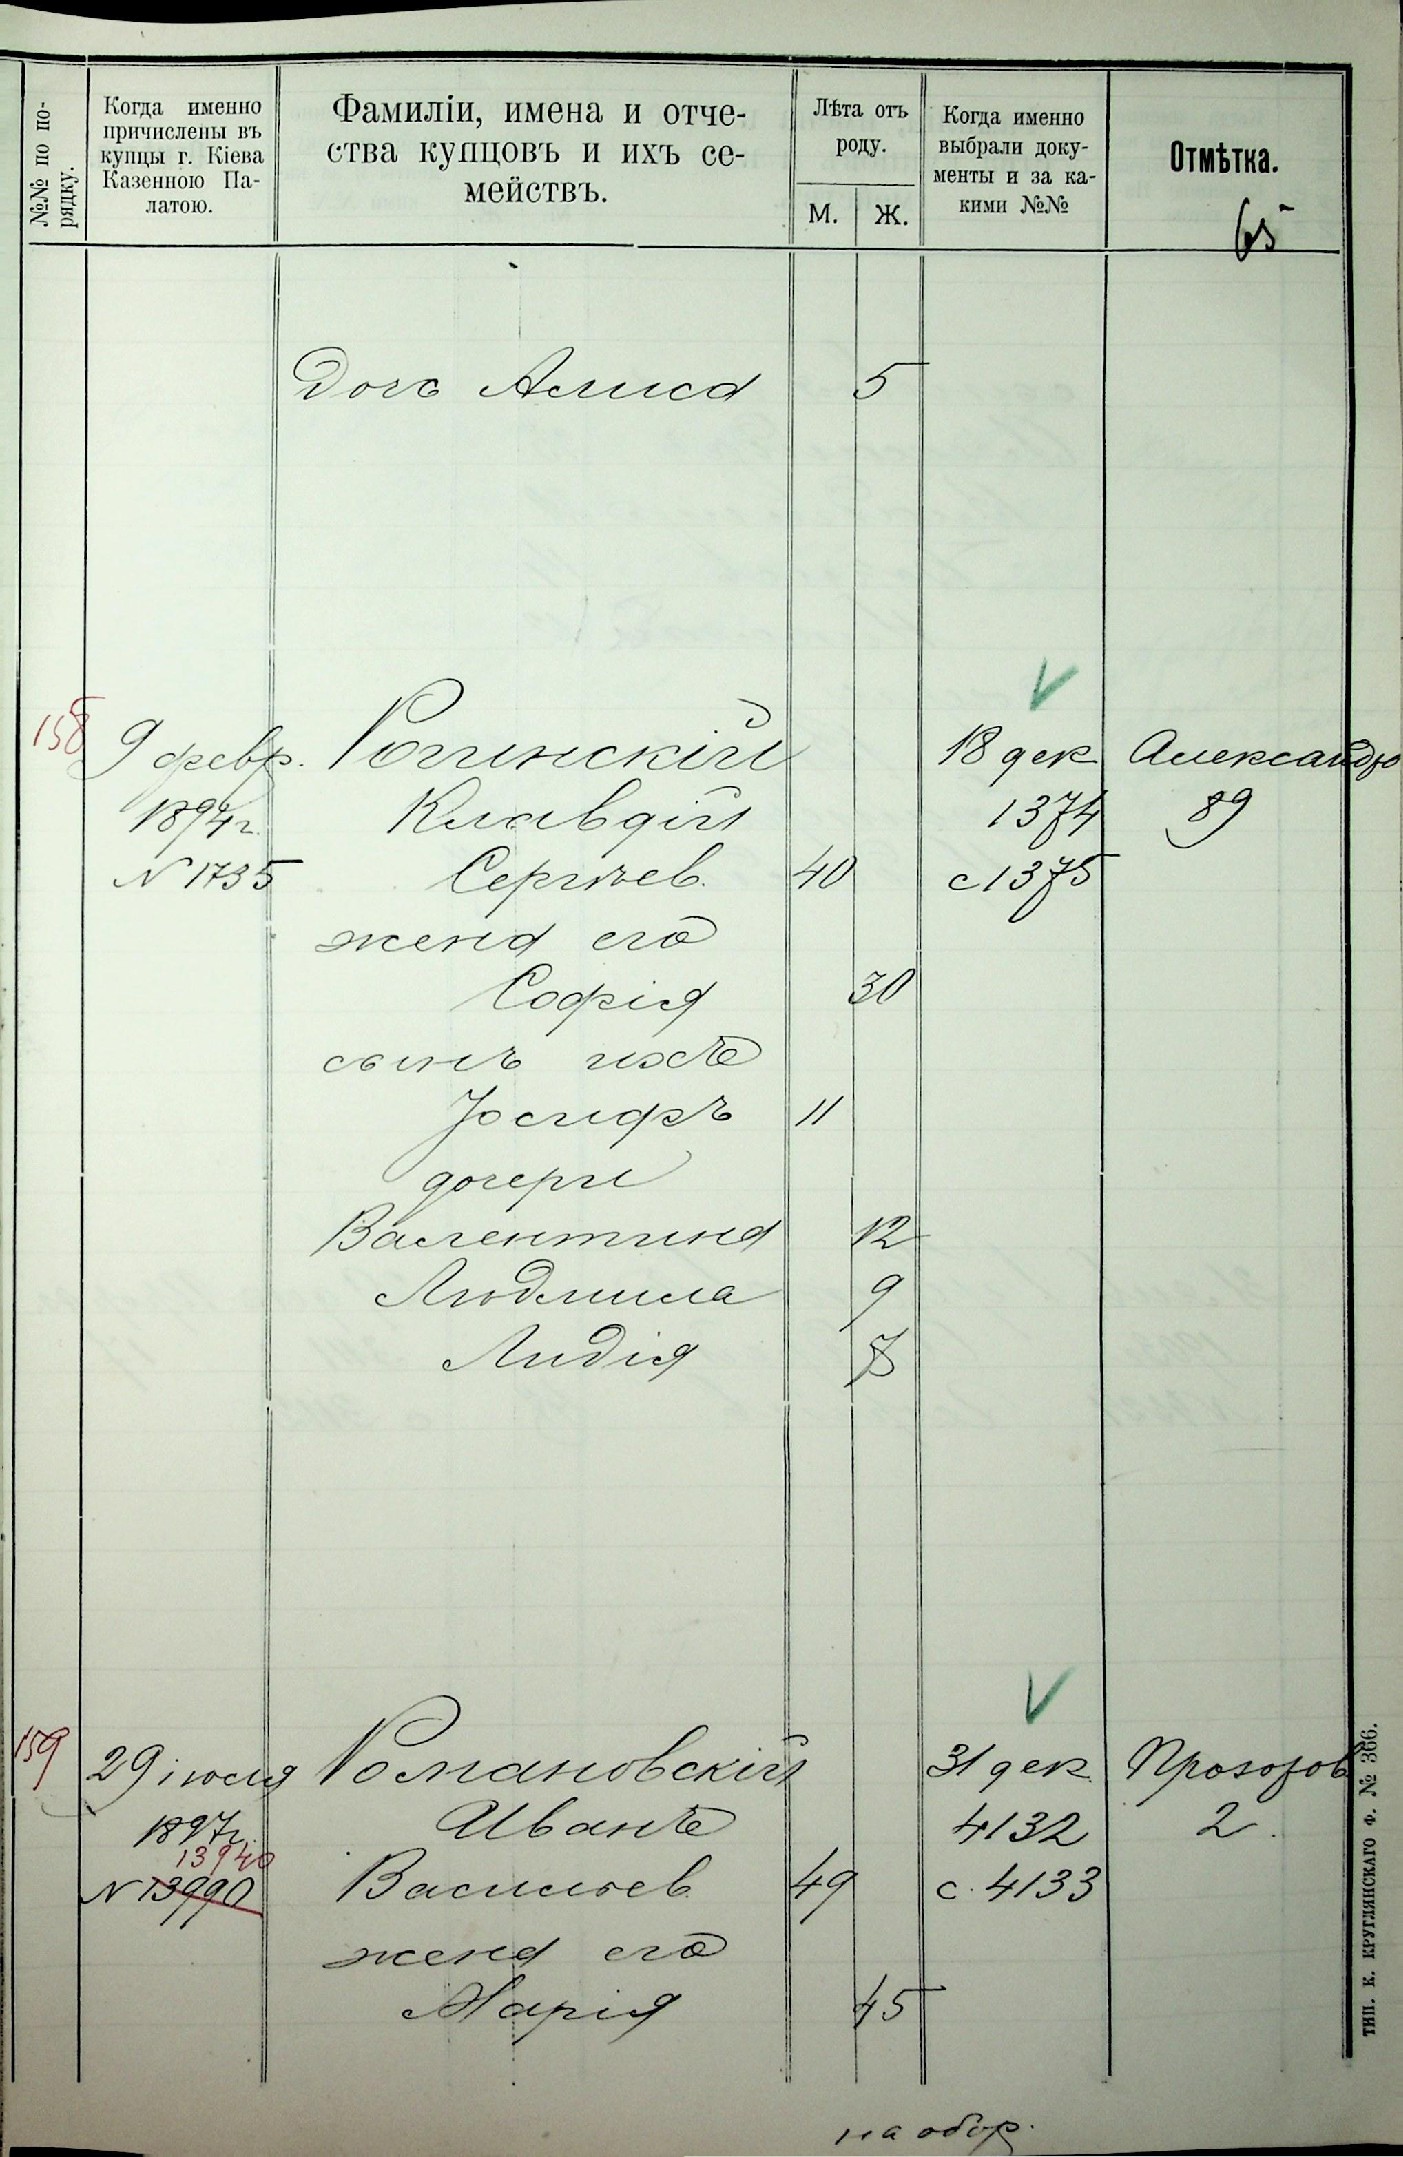 №№ по по-
рядку.
Когда именно
причислены въ
купцы г. Кіева
Казенною Па-
латою.
Фамиліи, имена и отче-
ства купцовъ и ихъ се-
мействъ.
Лѣта отъ
роду.
М. Ж.
Когда именно
выбрали доку-
менты и за ка-
кими №№
Отмѣтка.
65
Дочь Алиса 5
158 9 февр. Рогинскій 18 дек Александро
1894 г. Клавдій 1374 89
N 1735 Сергѣев. 40 с 1375
жена его
Софія 30
сынъ ихъ
Іосифъ 11
дочери
Валентина 12
Людмила 9
Лидія
159 29 іюля Романовскій 31 дек Прозоров
1897 г. Иванъ 4132 2.
13940
N 13990 Васильев 49 с. 4133
жена его
Марія 45
на обор.
тип. К. Круглянскаго Ф. № 366.